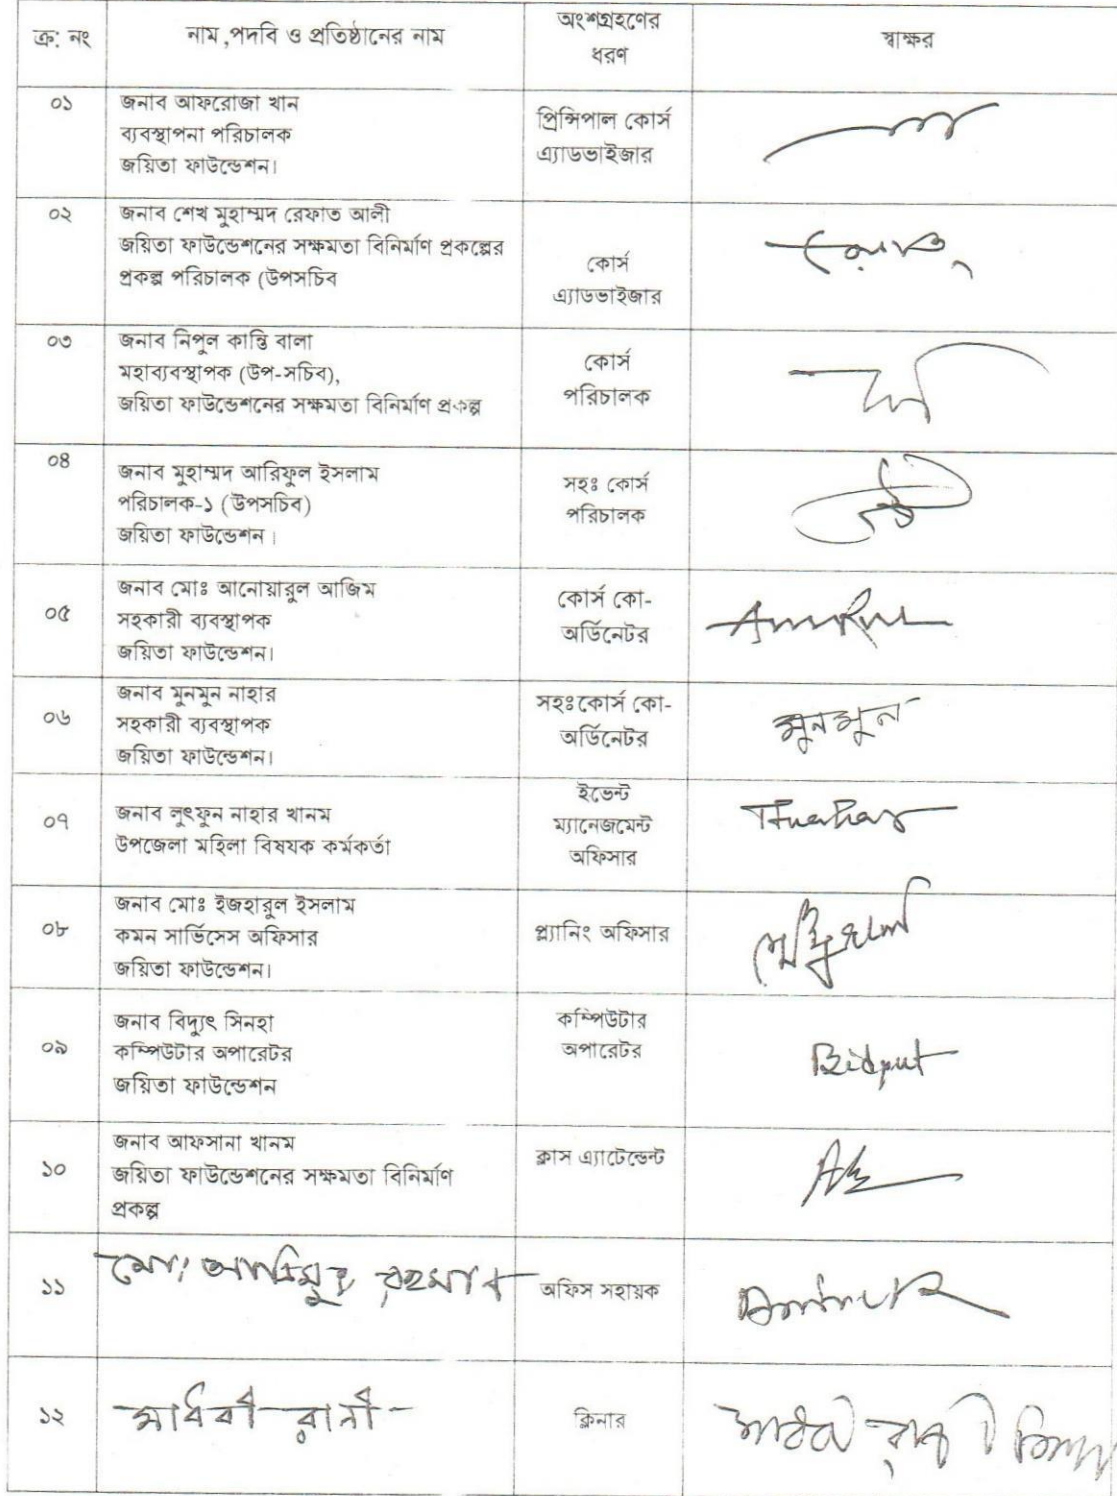 ক্র: নং
নাম ,পদবি ও প্রতিষ্ঠানের নাম
অংশগ্রহণের
ধরণ
স্বাক্ষর
০১
জনাব আফরোজা খান
ব্যবস্থাপনা পরিচালক
জয়িতা ফাউন্ডেশন।
প্রিন্সিপাল কোর্স
এ্যাডভাইজার
০২
জনাব শেখ মুহাম্মদ রেফাত আলী
জয়িতা ফাউন্ডেশনের সক্ষমতা বিনির্মাণ প্রকল্পের
প্রকল্প পরিচালক (উপসচিব
কোর্স
এ্যাডভাইজার
০৩
জনাব নিপুল কান্তি বালা
মহাব্যবস্থাপক (উপ-সচিব),
জয়িতা ফাউন্ডেশনের সক্ষমতা বিনির্মাণ প্রকল্প
কোর্স
পরিচালক
০৪
জনাব মুহাম্মদ আরিফুল ইসলাম
পরিচালক-১ (উপসচিব)
জয়িতা ফাউন্ডেশন।
সহঃ কোর্স
পরিচালক
০৫
জনাব মোঃ আনোয়ারুল আজিম
সহকারী ব্যবস্থাপক
জয়িতা ফাউন্ডেশন।
কোর্স কো-
অর্ডিনেটর
০৬
জনাব মুনমুন নাহার
সহকারী ব্যবস্থাপক
জয়িতা ফাউন্ডেশন।
সহঃকোর্স কো-
অর্ডিনেটর
মুনমুন
০৭
জনাব লুৎফুন নাহার খানম
উপজেলা মহিলা বিষযক কর্মকর্তা
ইভেন্ট
ম্যানেজমেন্ট
অফিসার
০৮
জনাব মোঃ ইজহারুল ইসলাম
কমন সার্ভিসেস অফিসার
জয়িতা ফাউন্ডেশন।
প্ল্যানিং অফিসার
০৯
জনাব বিদ্যুৎ সিনহা
কম্পিউটার অপারেটর
জয়িতা ফাউন্ডেশন
কম্পিউটার
অপারেটর
Bidyut
১০
জনাব আফসানা খানম
জয়িতা ফাউন্ডেশনের সক্ষমতা বিনির্মাণ
প্রকল্প
ক্লাস এ্যাটেন্ডেন্ট
১১
মো: রহমান
অফিস সহায়ক
১২
মাধবী রানী
ক্লিনার